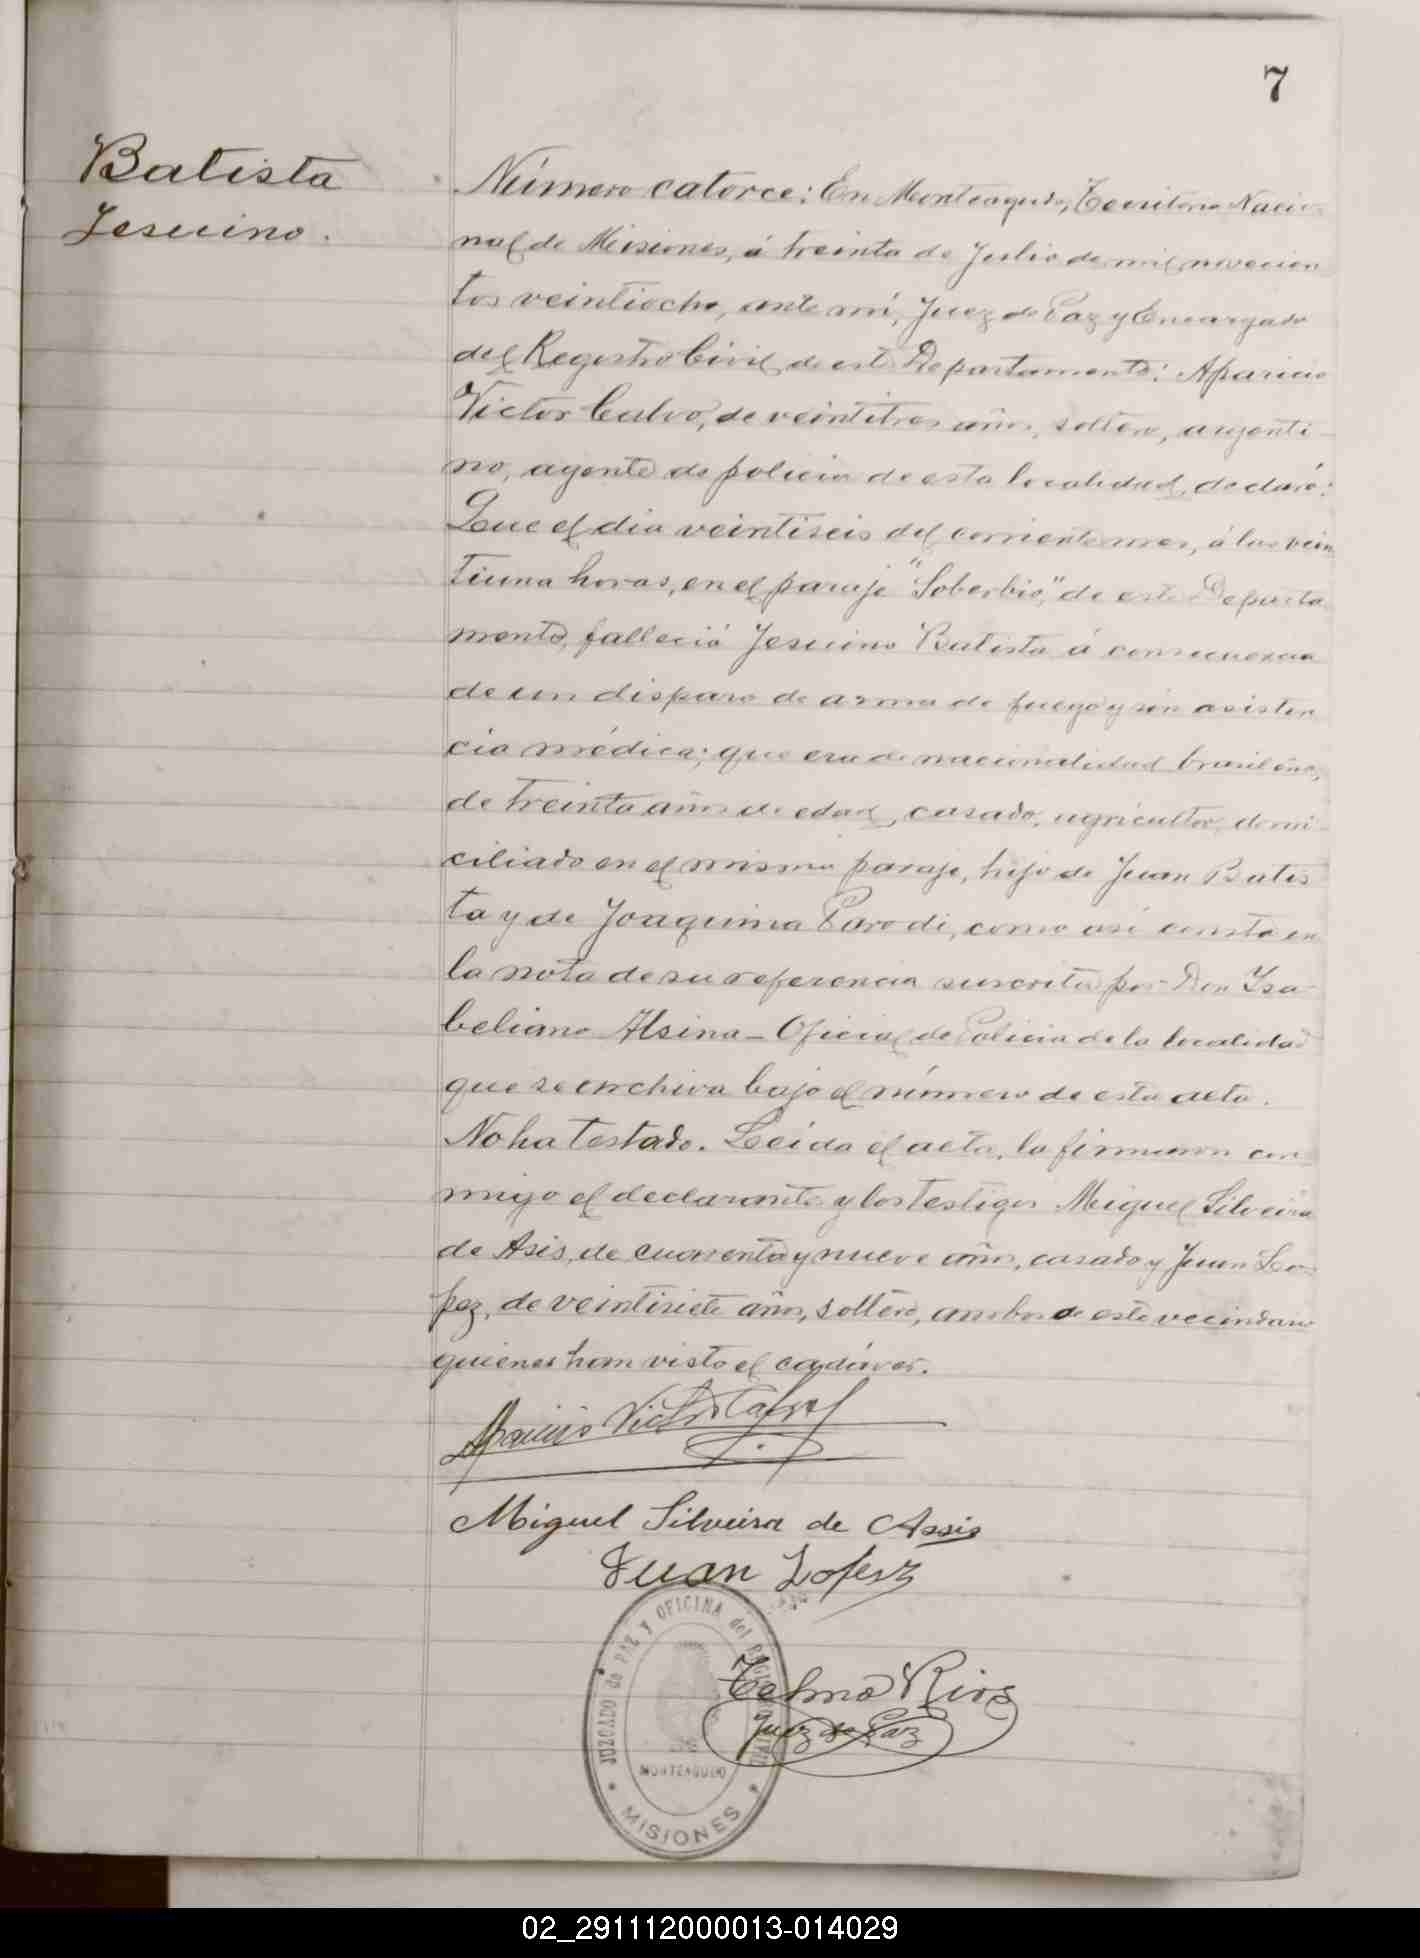 7
Batista
Jesuino.
Número catorce: En Monteagudo, Territorio Nacio-
nal de Misiones, á treinta de Julio de mil novecien
tos veintiocho, ante mí, Juez de Paz y Encargado
del Registro Civil de este Departamento: Aparicio
Victor Calvo, de veintitres años, soltero, argenti-
no, agente de policia de esta localidad, declaró:
Que el dia veintiseis del corriente mes, á las vein
tiuna horas, en el paraje "Soberbio", de este Departa
mento, falleció Jesuino Batista á consecuencia
de un disparo de arma de fuego y sin asisten
cia médica; que era de nacionalidad brasileña,
de treinta años de edad, casado, agricultor, domi-
ciliado en el mismo paraje, hijo de Juan Batis
ta y de Joaquina Parodi, como asi consta en
la nota de su referencia suscrita por Don Isa-
beliano Alsina - Oficial de Policia de la localidad
que se archiva bajo el número de esta acta.
No ha testado. Leida el acta, la firmaron con
migo el declarante y los testigos Miguel Silveira
de Asis, de cuarenta y nueve años, casado y Juan Lo-
pez, de veintisiete años, soltero, ambos de este vecindario
quienes han visto el cadáver.
Aparicio Victor Cabral
Miguel Silveira de Assis
Juan Lopez
JUZGADO de PAZ y OFICINA del REGISTRO CIVIL
Telmo Rios
Juez de Paz
MONTEAGUDO
* MISIONES *
02_291112000013-014029